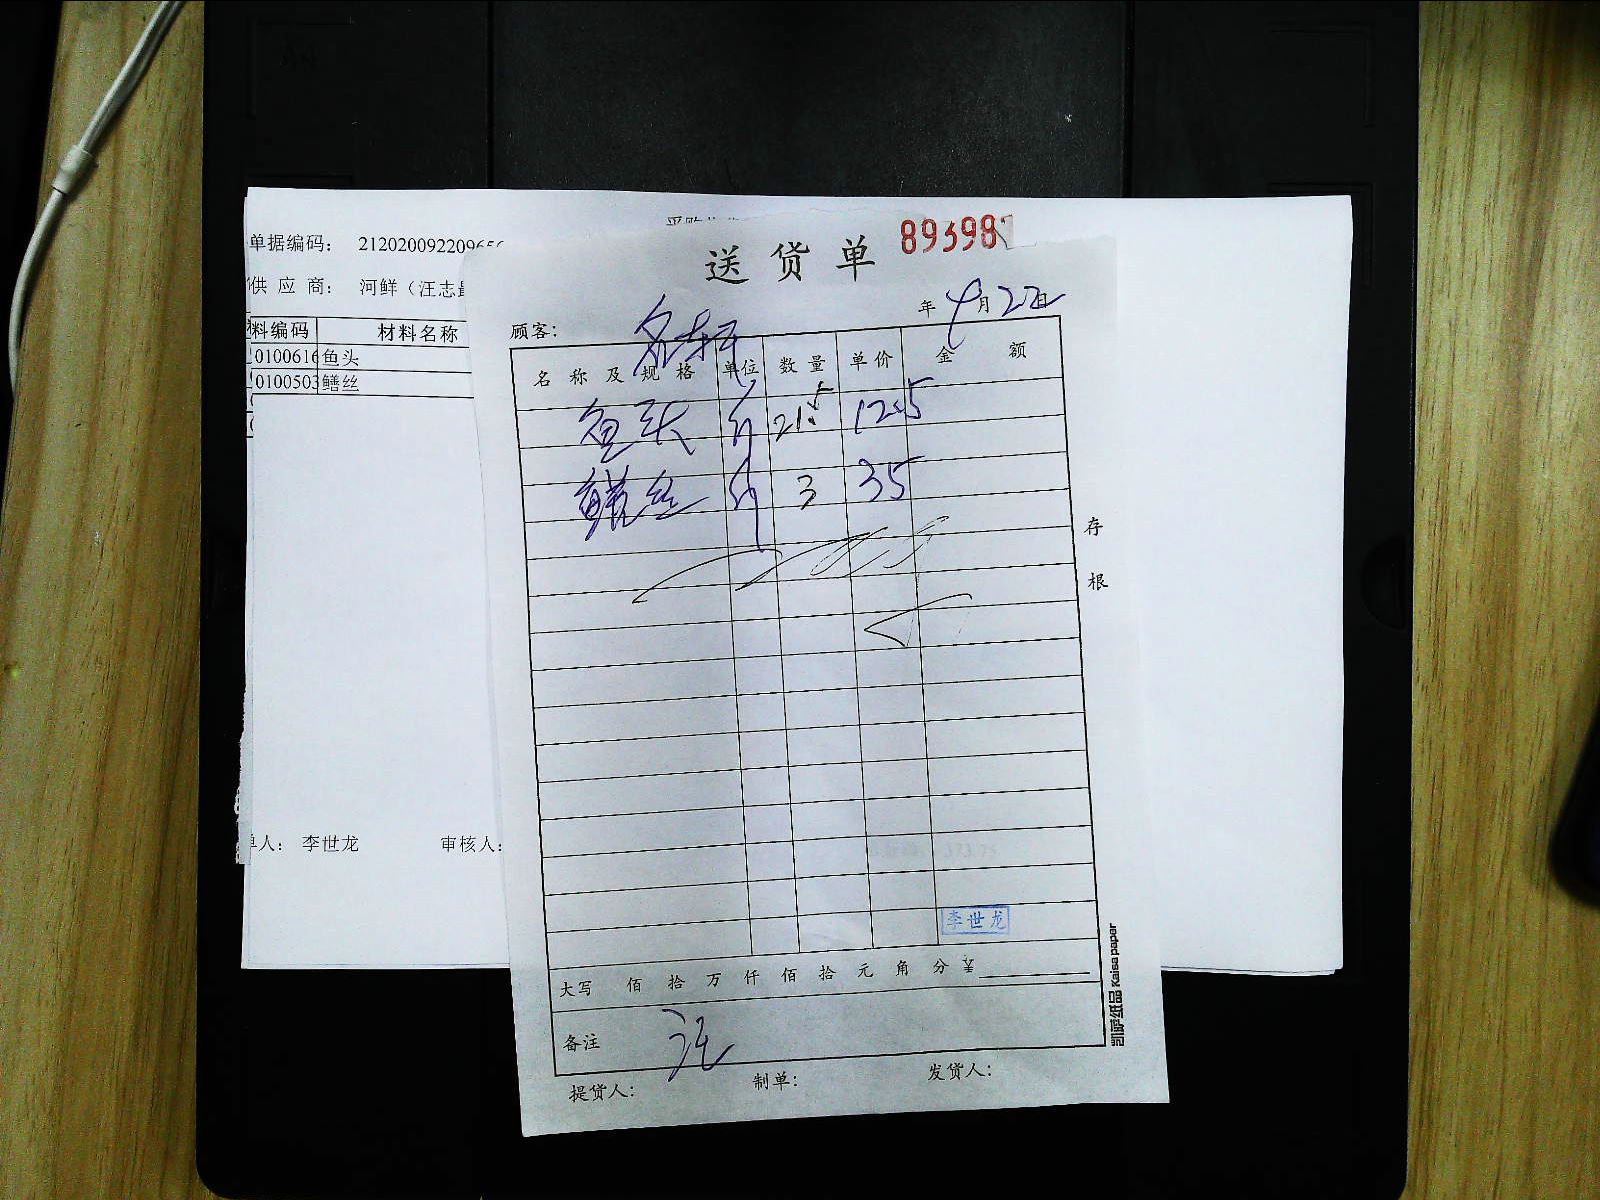 单据编码： 2120200922096
供 应 商： 河鲜（汪志
料编码 材料名称
0100616 鱼头
0100503 鳝丝
单人： 李世龙 审核人：
送 货 单 89398
年 9月 22日
顾客： 名轩
名 称 及 规 格 单位 数 量 单价 金 额
鱼头 斤 21.5 12.5
鳝丝 斤 3 35
存
根
373.75
李世龙
大写 佰 拾 万 仟 佰 拾 元 角 分 ¥
备注 汪
凯萨纸品 Kaisa paper
提货人： 制单： 发货人：